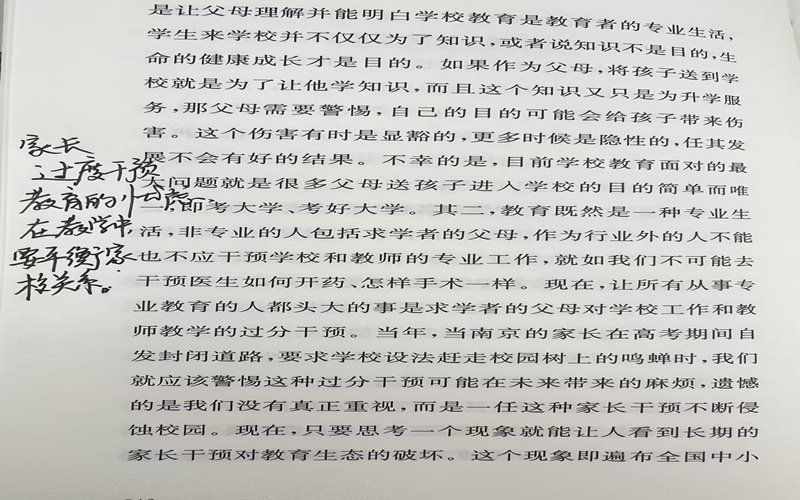 是让父母理解并能明白学校教育是教育者的专业生活，
学生来学校并不仅仅为了知识，或者说知识不是目的，生
命的健康成长才是目的。如果作为父母，将孩子送到学
校就是为了让他学知识，而且这个知识又只是为升学服
务，那父母需要警惕，自己的目的可能会给孩子带来伤
害。这个伤害有时是显豁的，更多时候是隐性的，任其发
展不会有好的结果。不幸的是，目前学校教育面对的最
大问题就是很多父母送孩子进入学校的目的简单而唯
一，即考大学、考好大学。其二，教育既然是一种专业生
活，非专业的人包括求学者的父母，作为行业外的人不能
也不应干预学校和教师的专业工作，就如我们不可能去
干预医生如何开药、怎样手术一样。现在，让所有从事专
业教育的人都头大的事是求学者的父母对学校工作和教
师教学的过分干预。当年，当南京的家长在高考期间自
发封闭道路，要求学校设法赶走校园树上的鸣蝉时，我们
就应该警惕这种过分干预可能在未来带来的麻烦，遗憾
的是我们没有真正重视，而是一任这种家长干预不断侵
蚀校园。现在，只要思考一个现象就能让人看到长期的
家长干预对教育生态的破坏。这个现象即遍布全国中小
家长
过度干预
教育的
在教学中
要平衡家
校关系。